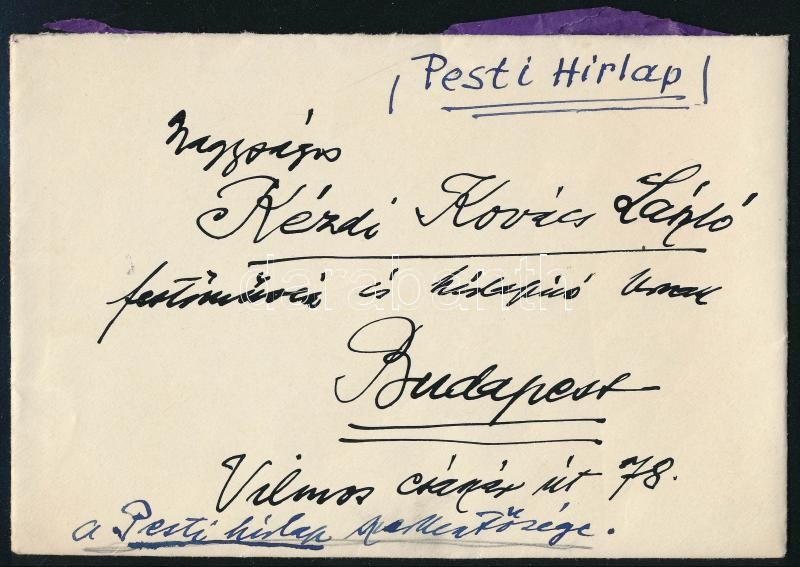 ( Pesti Hirlap )
Nagyságos
Kézdi Kovács László
festőművész és hirlapiró Urnak
darabanth
Budapest
Vilmos császár út 78.
a Pesti hirlap szerkesztősége.